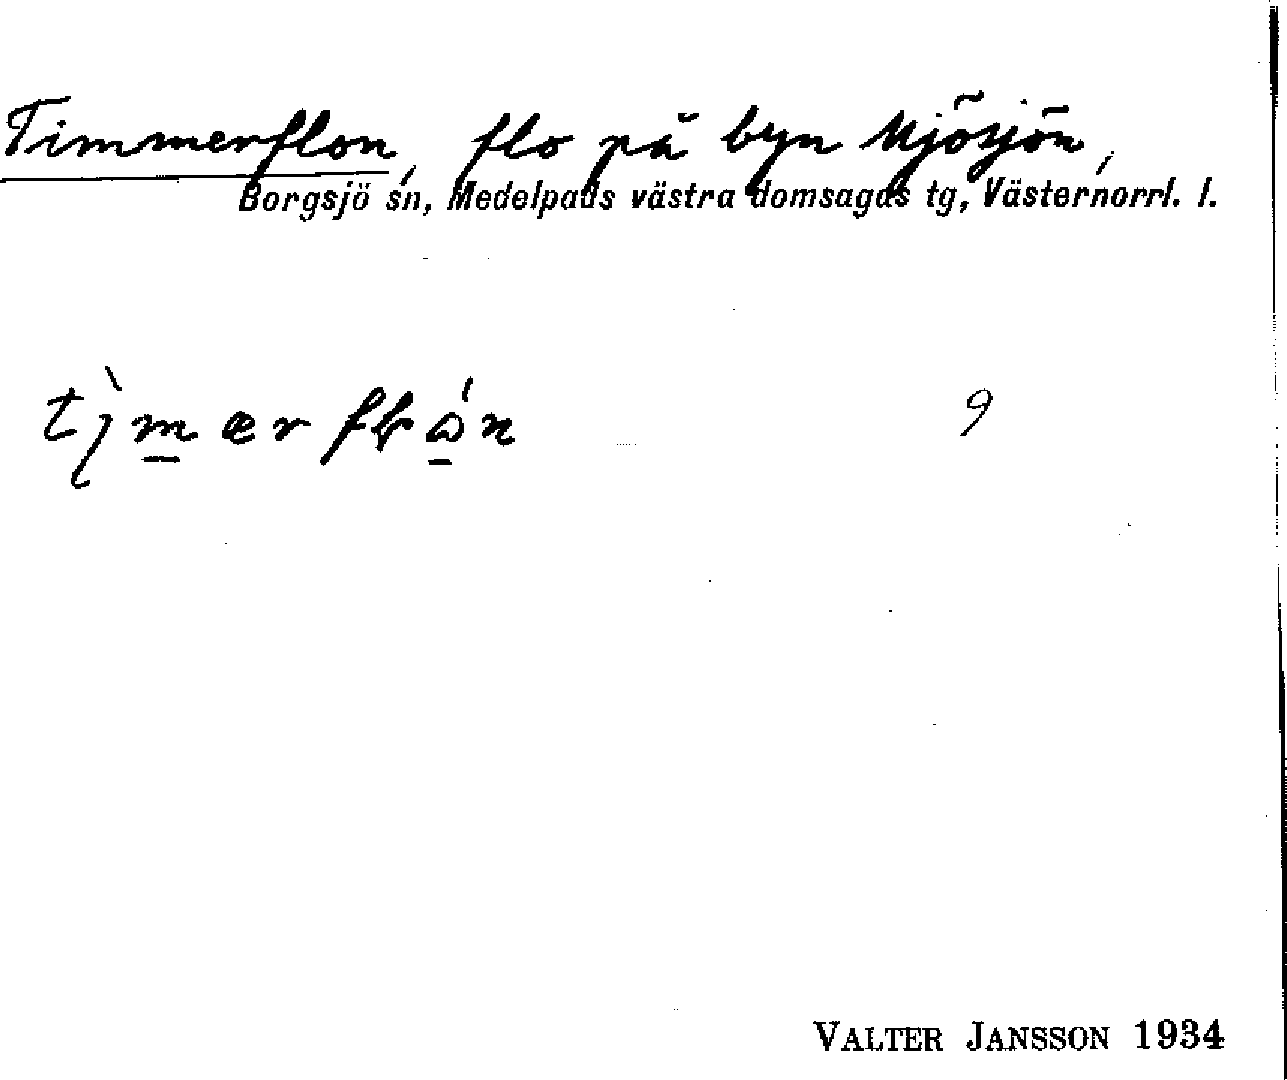 Timmerflon, flo på byn Mjösjön,
Borgsjö sn, Medelpads västra domsagas tg, Västernorrl. l.
9
VALTER JANSSON 1934